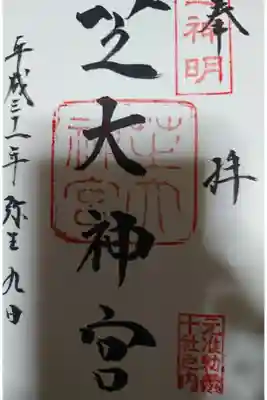 奉拝
神明
元准勅祭
十社之内
芝大神宮
芝大
神宮
平成三十一年弥生九日